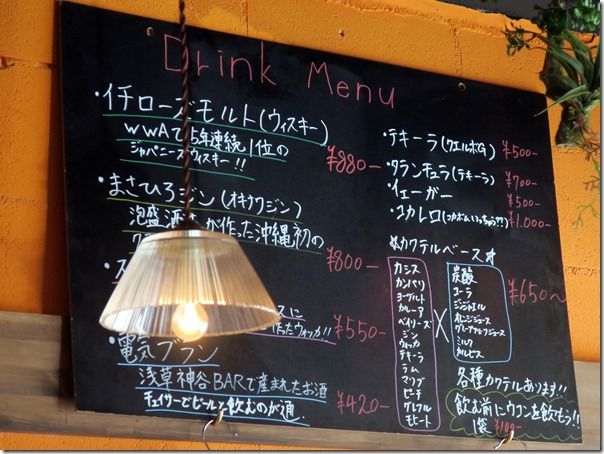 Drink Menu
・イチローズモルト(ウィスキー)
WWAで5年連続1位の
ジャパニーズウィスキー!! ¥880-
・まさひろジン(オキナワジン)
泡盛酒 が作った沖縄初の
¥800-
ス
スに
たウォッカ!! ¥550-
・電気ブラン
浅草神谷BARで産まれたお酒
チェイサーでビールを飲むのが通 ¥420-
・テキーラ(クエルボG) ¥500-
・タランチュラ(テキーラ) ¥700-
・イェーガー ¥500-
・コカレロ(コカボムいっちゃう??) ¥1.000-
カクテルベース
カシス
カンパリ
ヨーグルト
カルーア
ベイリーズ
ジン
ウォッカ
テキーラ
ラム
マリブ
ピーチ
モヒート
X
炭酸
コーラ
ジンジャエール
オレンジジュース
グレープフルーツジュース
ミルク
カルピス
¥650~
各種カクテルあります!!
飲む前にウコンを飲もう!!
1袋 ¥100-